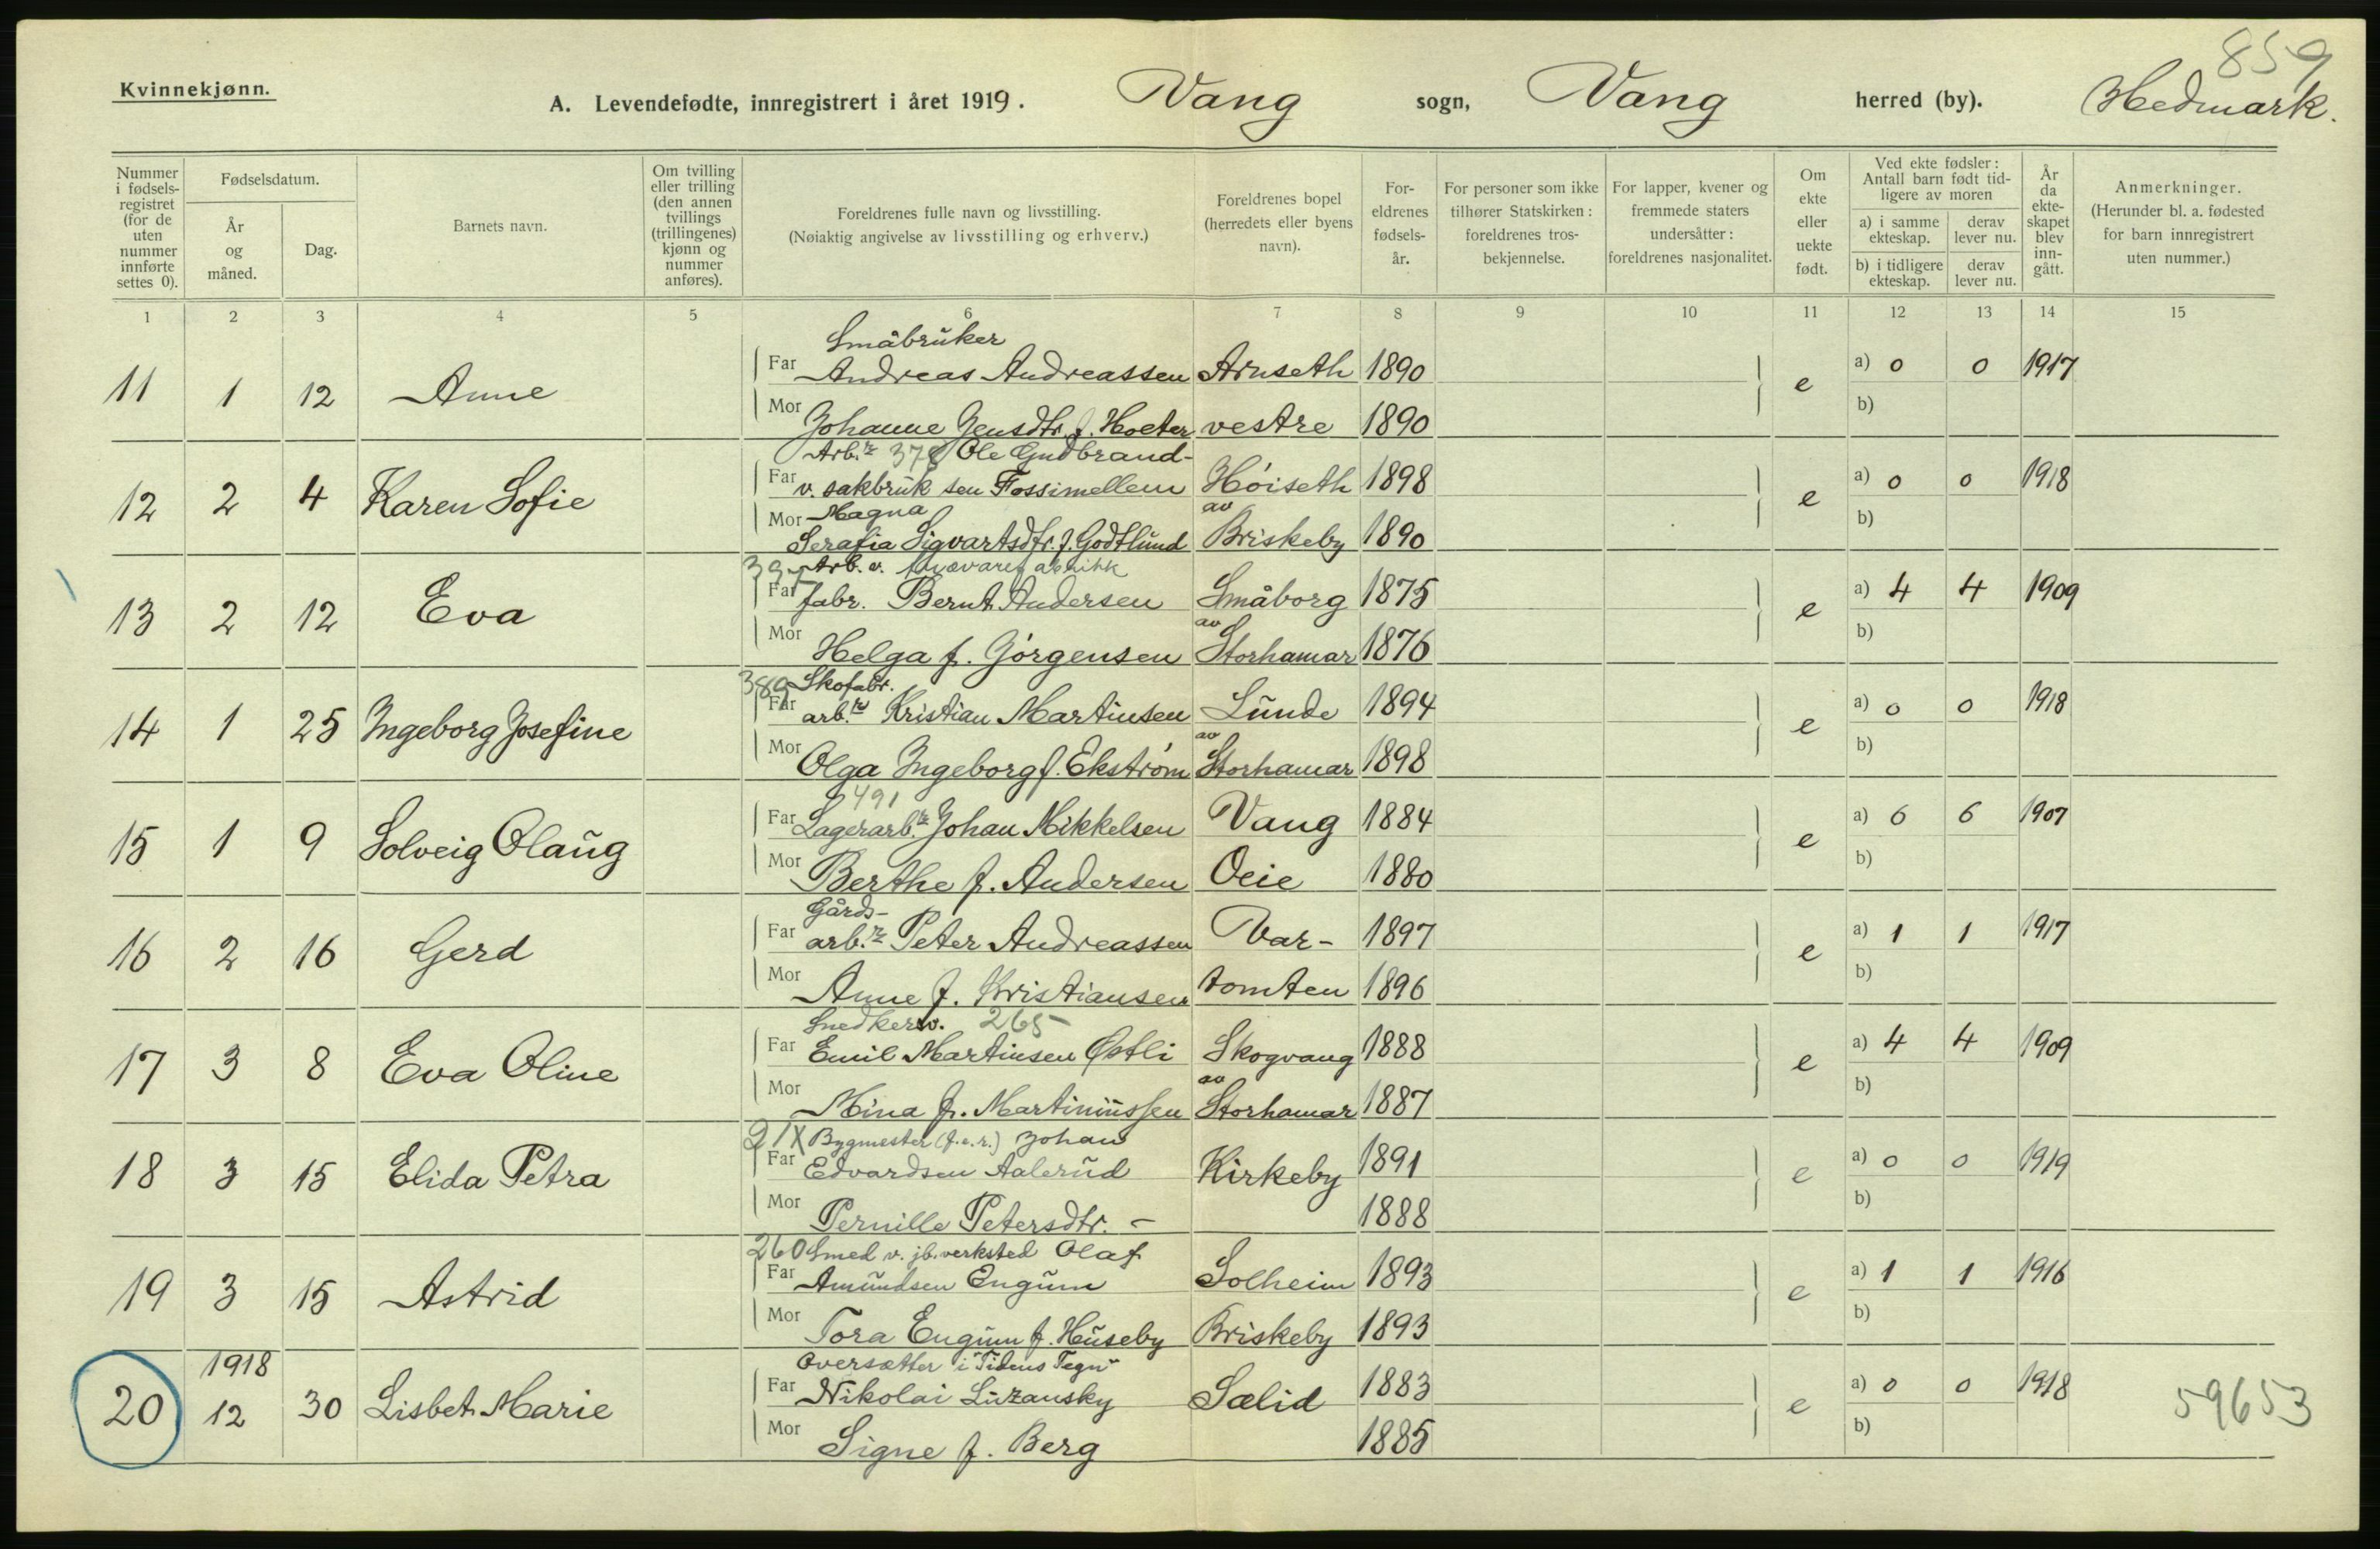 859
Kvinnekjønn.
A. Levendefødte, innregistrert i året 1919. Vang sogn, Vang herred (by). Hedmark.
Nummer i fødsels-registret (for de uten nummer innførte settes 0). Fødselsdatum. År og måned. Dag. Barnets navn. Om tvilling eller trilling (den annen tvillings (trillingenes) kjønn og nummer anføres). Foreldrenes fulle navn og livsstilling. (Nøiaktig angivelse av livsstilling og erhverv.) Foreldrenes bopel (herredets eller byens navn). For-eldrenes fødsels-år. For personer som ikke tilhører Statskirken: foreldrenes tros-bekjennelse. For lapper, kvener og fremmede staters undersåtter: foreldrenes nasjonalitet. Om ekte eller uekte født. Ved ekte fødsler: Antall barn født tid-ligere av moren a) i samme ekteskap. derav lever nu. b) i tidligere ekteskap. derav lever nu. År da ekte-skapet blev inn-gått. Anmerkninger. (Herunder bl. a. fødested for barn innregistrert uten nummer.)
1 2 3 4 5 6 7 8 9 10 11 12 13 14 15
Småbruker
11 1 12 Anne Far Andreas Andreassen Arnseth 1890 e a) 0 0 1917
Mor Johanne Jensdtr. f. Hoeter vestre 1890 b)
Arb.r Ole Gudbrand-
12 2 4 Karen Sofie Far v. sakbruk sen Fossimellem Høiseth 1898 e a) 0 0 1918
Mor Magna av b)
Serafia Sigvartsdtr. f. Godtlund Briskeby 1890
Arb. v.
13 2 12 Eva Far fabr. Bernt Andersen Småborg 1875 e a) 4 4 1909
Mor Helga f. Gørgensen av Storhamar 1876 b)
389 Skofabr.
14 1 25 Ingeborg Josefine Far arb.r Kristian Martinsen Lunde 1894 e a) 0 0 1918
Mor Olga Ingeborg f. Ekstrøm av Storhamar 1898 b)
491
15 1 9 Solveig Olaug Far Lagerarb.r Johan Mikkelsen Vang 1884 e a) 6 6 1907
Mor Berthe f. Andersen Oeie 1880 b)
Gårds-
16 2 16 Gerd Far arb.r Peter Andreassen Var- 1897 e a) 1 1 1917
Mor Anne f. Kristiansen tomten 1896 b)
Snedkersv. 265
17 3 8 Eva Oline Far Emil Martinsen Østli Skogvang 1888 e a) 4 4 1909
Mor Mina f. Martinussen av Storhamar 1887 b)
21X Bygmester (f.e.r.) Johan
18 3 15 Elida Petra Far Edvardsen Aalerud Kirkeby 1891 e a) 0 0 1919
Mor Pernille Petersdtr. - 1888 b)
260 Smed v. jb.verksted Olaf
19 3 15 Astrid Far Amundsen Engum Solheim 1893 e a) 1 1 1916
Mor Tora Engum f. Huseby Briskeby 1893 b)
1918 Oversætter i "Tidens Tegn"
20 12 30 Lisbet Marie Far Nikolai Luzansky Sælid 1883 e a) 0 0 1918 59653
Mor Signe f. Berg 1885 b)